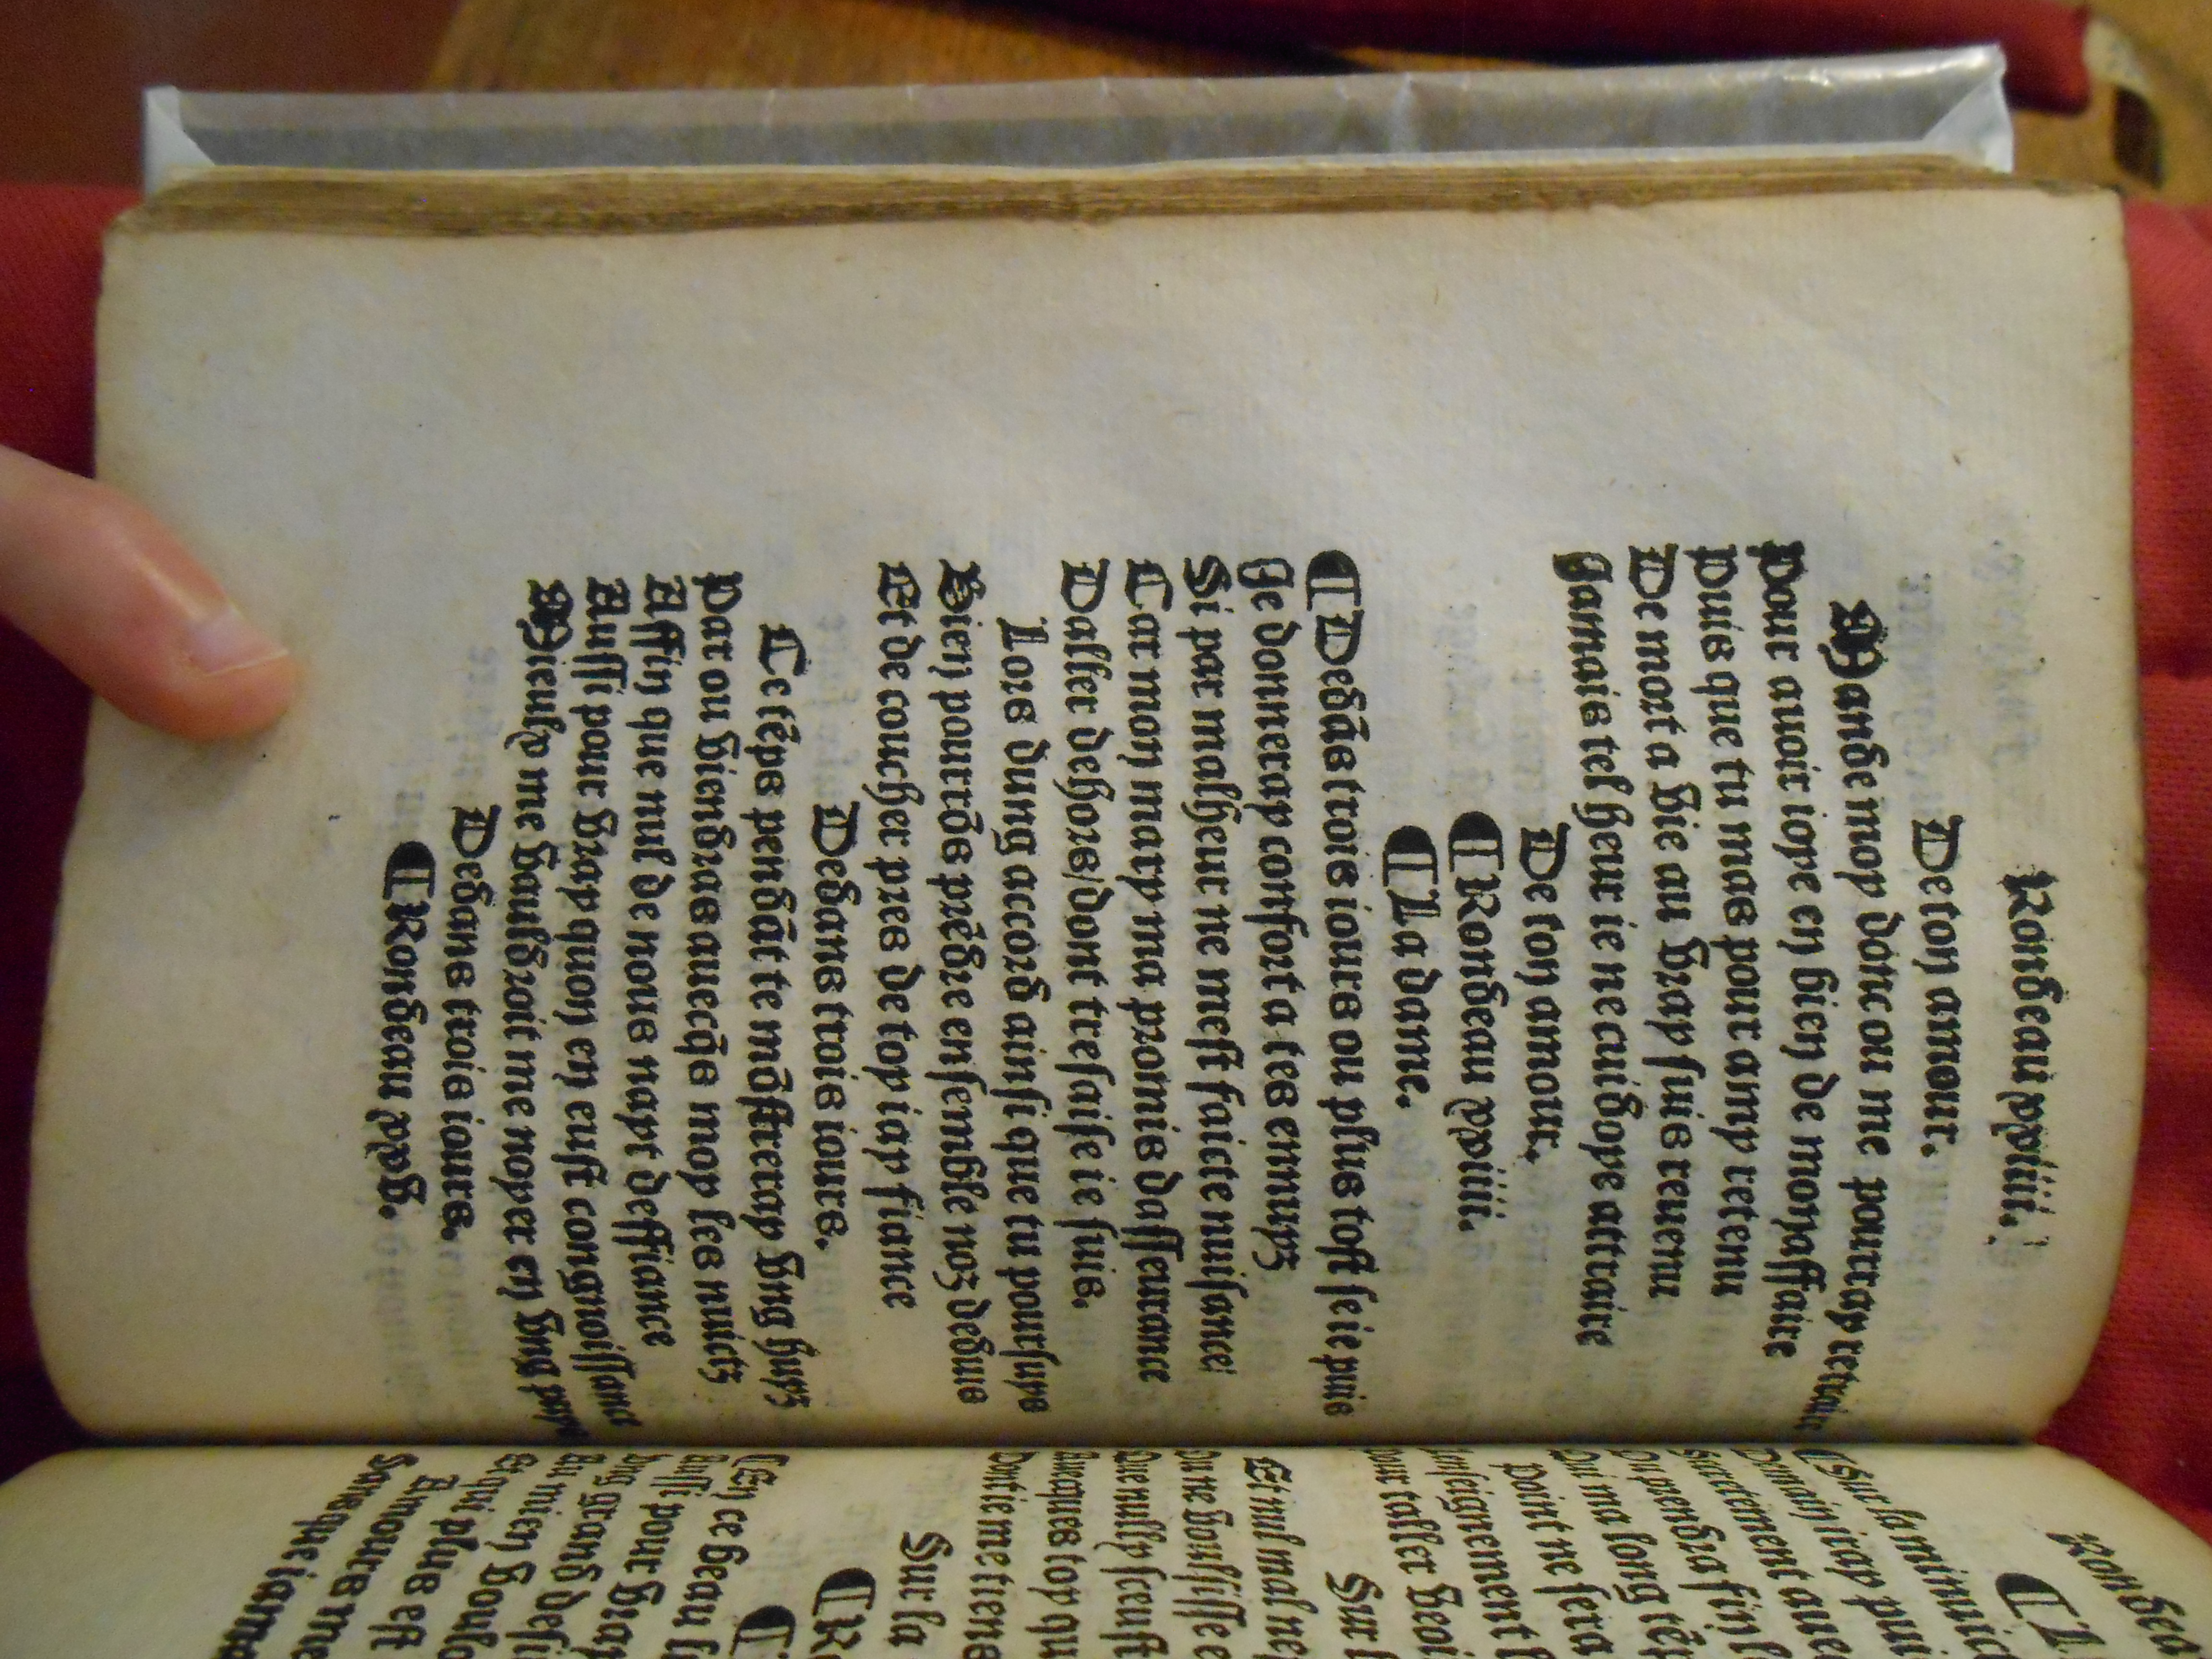 Rondeau xxiiii.
De ton amour.
Mande moy donc ou me pourray retraire
Pour auoir ioye en bien de mon affaire
Puis que tu mas pour amy retenu
De mort a vie au vray suis reuenu
Jamais tel heur ie ne cuidoye attraire
De ton amour.
¶ Rondeau xxiiii.
¶ La dame.
¶ Dedās trois iours ou plus tost se ie puis
Je donneray confort a tes ennuyz
Si par malheur ne mest faicte nuisance
Car mon mary ma promis dasseurance
Daller dehors/dont tresaise ie suis.
Lors dung accord ainsi que tu poursuys
Bien pourrōs prēdre ensemble noz deduis
Et de coucher pres de toy iay fiance
Dedans trois iours.
Ce tēps pendāt te mōstreray vng huys
Par ou viendras auecq̄s moy les nuictz
Affin que nul de nous nayt deffiance
Aussi pour vray quon en eust congnoissance
Mieulx me vauldroit me noyer en vng puys
Dedans trois iours.
¶ Rondeau xxv.
Rondea
Sur l
Et nul mal ne
Ou ne voulsisse e
Que nully sceust
Auecques toy qu
Sur la
¶ En ce beau l
Aussi pour vray
Ung grand desi
Au mien voulo
Et qui plus est
Amours me
Sans que iama